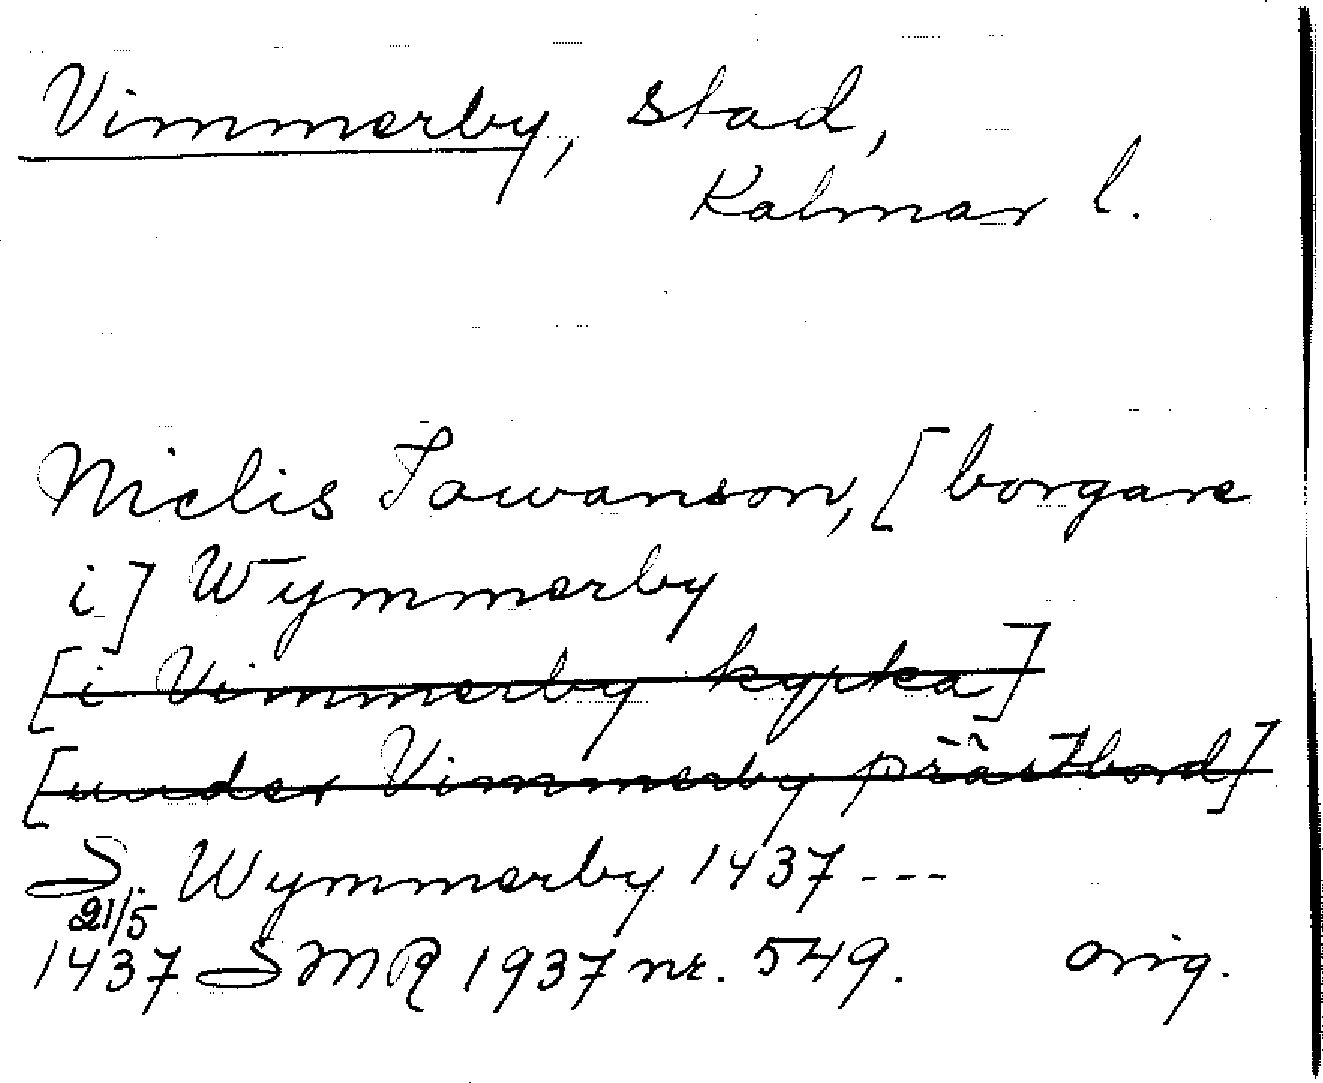 Vimmerby, stad,
Kalmar l.
Niclis Jowanson, [borgare
i] Wymmerby
[i Vimmerby kyrka]
[under Vimmerby prästbord]
S. Wymmerby 1437 ---
21/5
1437 SMR 1937 nr. 549. orig.